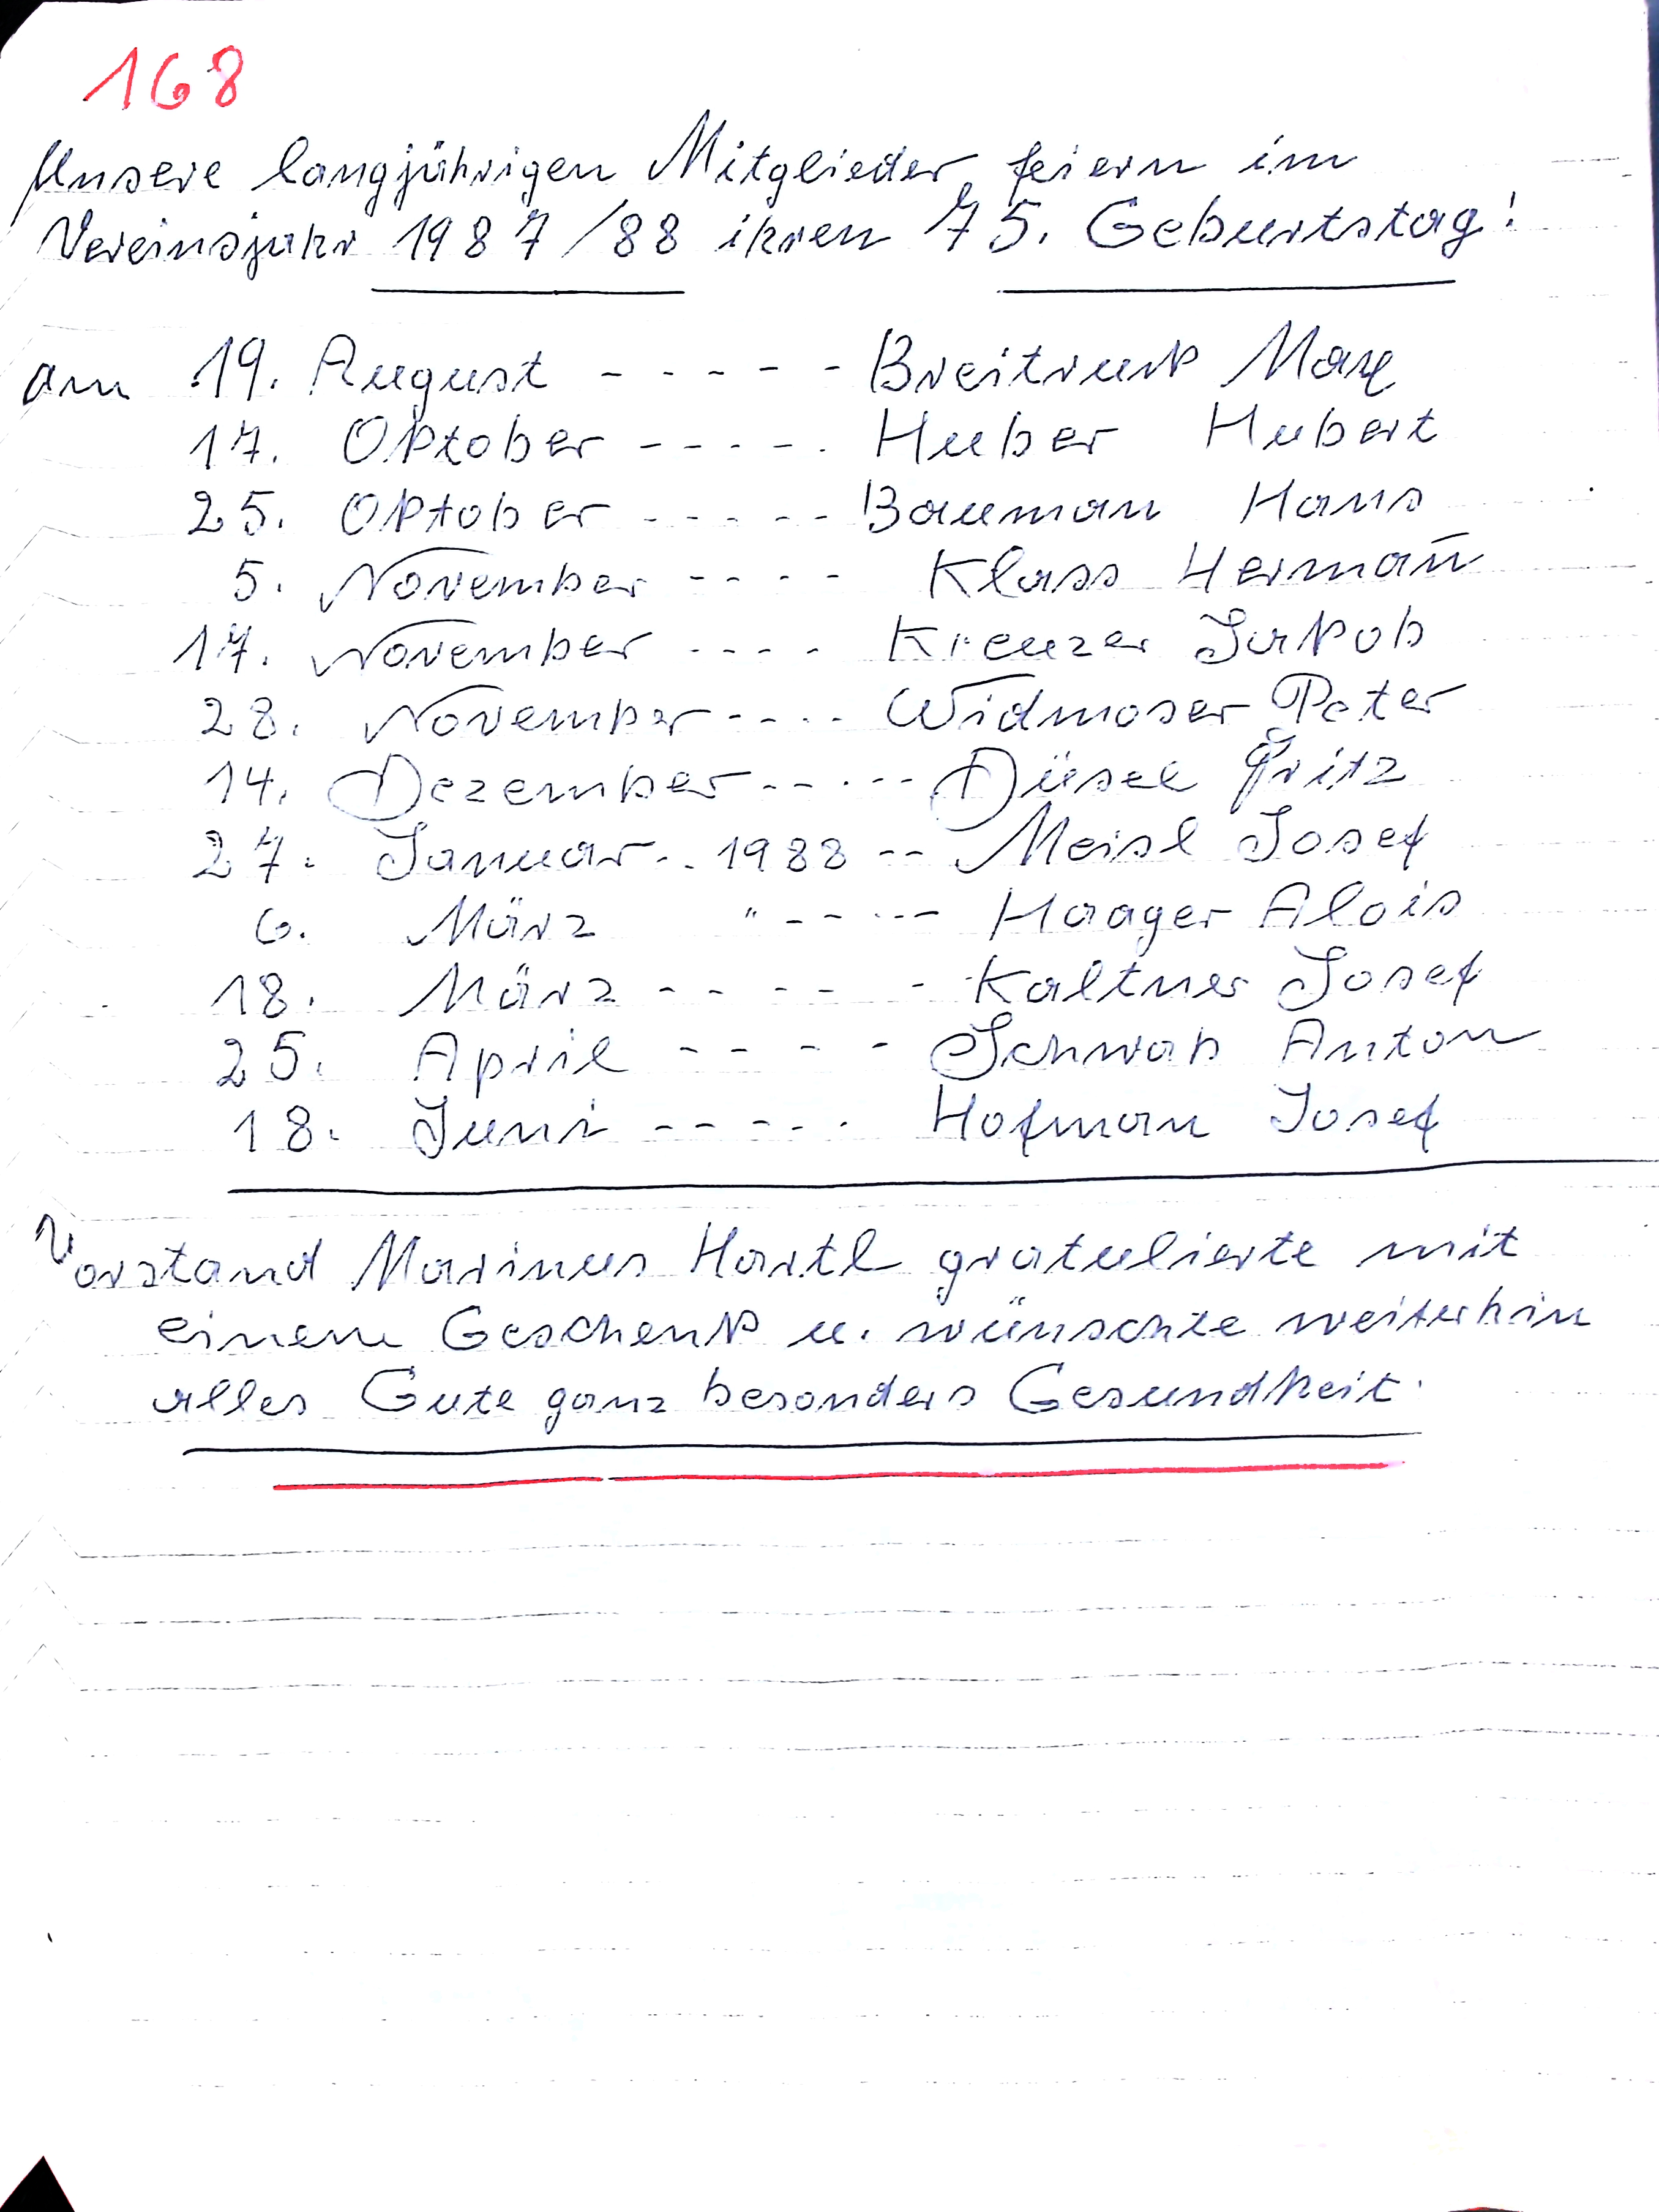 168
Unsere langjährigen Mitglieder feiern im
Vereinsjahr 1987/88 ihren 75. Geburtstag!
am 19. August - - - - - Breitrunk Max
17. Oktober - - - - . Huber Hubert
25. Oktober - - - - - Bauman Hans
5. November - - - - Klass Herman̄
17. November - - - - Kreuzer Jakob
28. November - - - - Widmoser Peter
14. Dezember - - - - - Düsel Fritz
27. Januar - - 1988 - - Meisl Josef
6. März " - - - - - Haager Alois
18. März - - - - - Kaltner Josef
25. April - - - - - Schwab Anton
18. Juni - - - - - Hofman Josef
Vorstand Marinus Hartl gratulierte mit
einem Geschenk u. wünschte weiterhin
alles Gute ganz besonders Gesundheit.